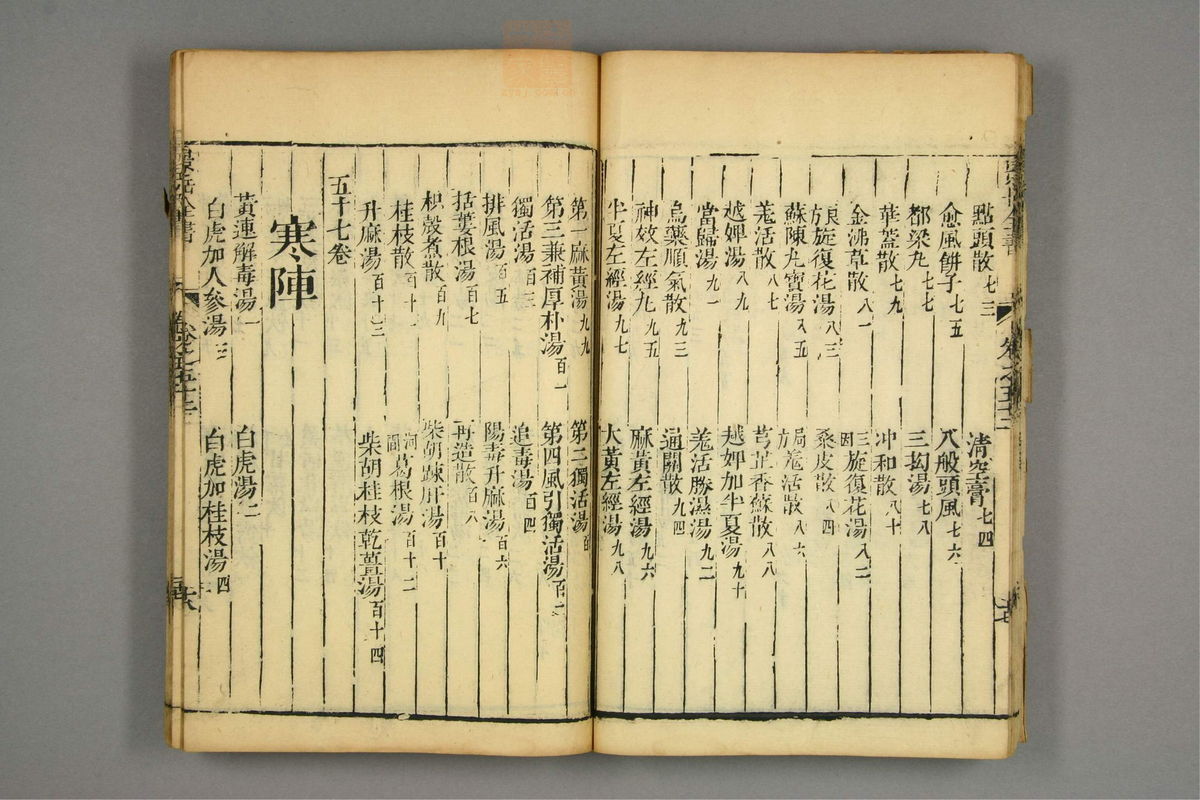 點頭散七三
清空膏七四
愈風餅子七五
八般頭風七六
都梁丸七七
三拗湯七八
華蓋散七九
冲和散八十
金沸草散八一
三因旋復花湯八二
旋復花湯八三
桑皮散八四
蘇陳九寶湯八五
局方羗活散八六
羗活散八七
芎芷香蘇散八八
越婢湯八九
越婢加半夏湯九十
當歸湯九一
羗活勝濕湯九二
烏藥順氣散九三
通關散九四
神效左經丸九五
麻黃左經湯九六
半夏左經湯九七
大黃左經湯九八
第一麻黃湯九九
第二獨活湯百
第三兼補厚朴湯百一
第四風引獨活湯百二
獨活湯百三
追毒湯百四
排風湯百五
陽毒升麻湯百六
括蔞根湯百七
再造散百八
枳殼煮散百九
柴胡踈肝湯百十
桂枝散百十一
河間葛根湯百十二
升麻湯百十三
柴胡桂枝乾薑湯百十四
五十七卷
寒陣
黃連解毒湯一
白虎湯二
白虎加人參湯三
白虎加桂枝湯四